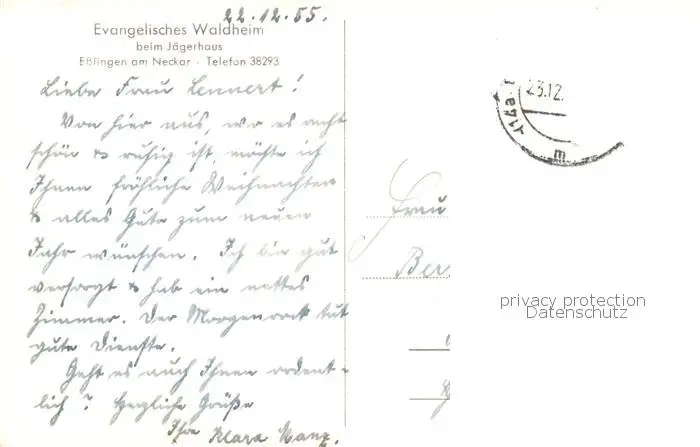 22.12.55.
Evangelisches Waldheim
beim Jägerhaus
Eßlingen am Neckar · Telefon 38293
Liebe Frau Lennert!
Von hier aus, wo es recht
schön & ruhig ist, möchte ich
Ihnen fröhliche Weihnachten
& alles Gute zum neuen
Jahr wünschen. Ich bin gut
versorgt & hab ein nettes
Zimmer. Der Morgenrock tut
gute Dienste.
Geht es auch Ihnen ordent-
lich? Herzliche Grüße
Ihre Klara Manz.
23.12.
Frau
Ber
privacy protection
Datenschutz